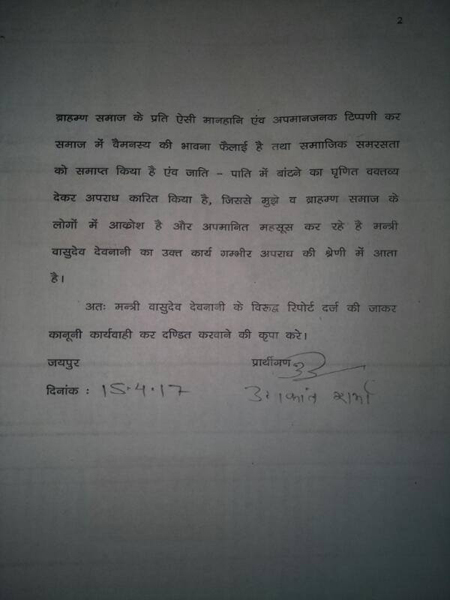 2
ब्राहम्ण समाज के प्रति ऐसी मानहानि एंव अपमानजनक टिप्पणी कर
समाज में वैमनस्य की भावना फैलाई है तथा समााजिक समरसता
को समाप्त किया है एंव जाति – पाति में बांटने का घृणित वक्तव्य
देकर अपराध कारित किया है, जिससे मुझे व ब्राहम्ण समाज के
लोगों में आक्रोश है और अपमानित महसूस कर रहे है मन्त्री
वासुदेव देवनानी का उक्त कार्य गम्भीर अपराध की श्रेणी में आता
है।
अतः मन्त्री वासुदेव देवनानी के विरूद्व रिपोर्ट दर्ज की जाकर
कानूनी कार्यवाही कर दण्डित करवाने की कृपा करे।
जयपुर प्रार्थीगण
दिनांक : 15.4.17
शर्मा